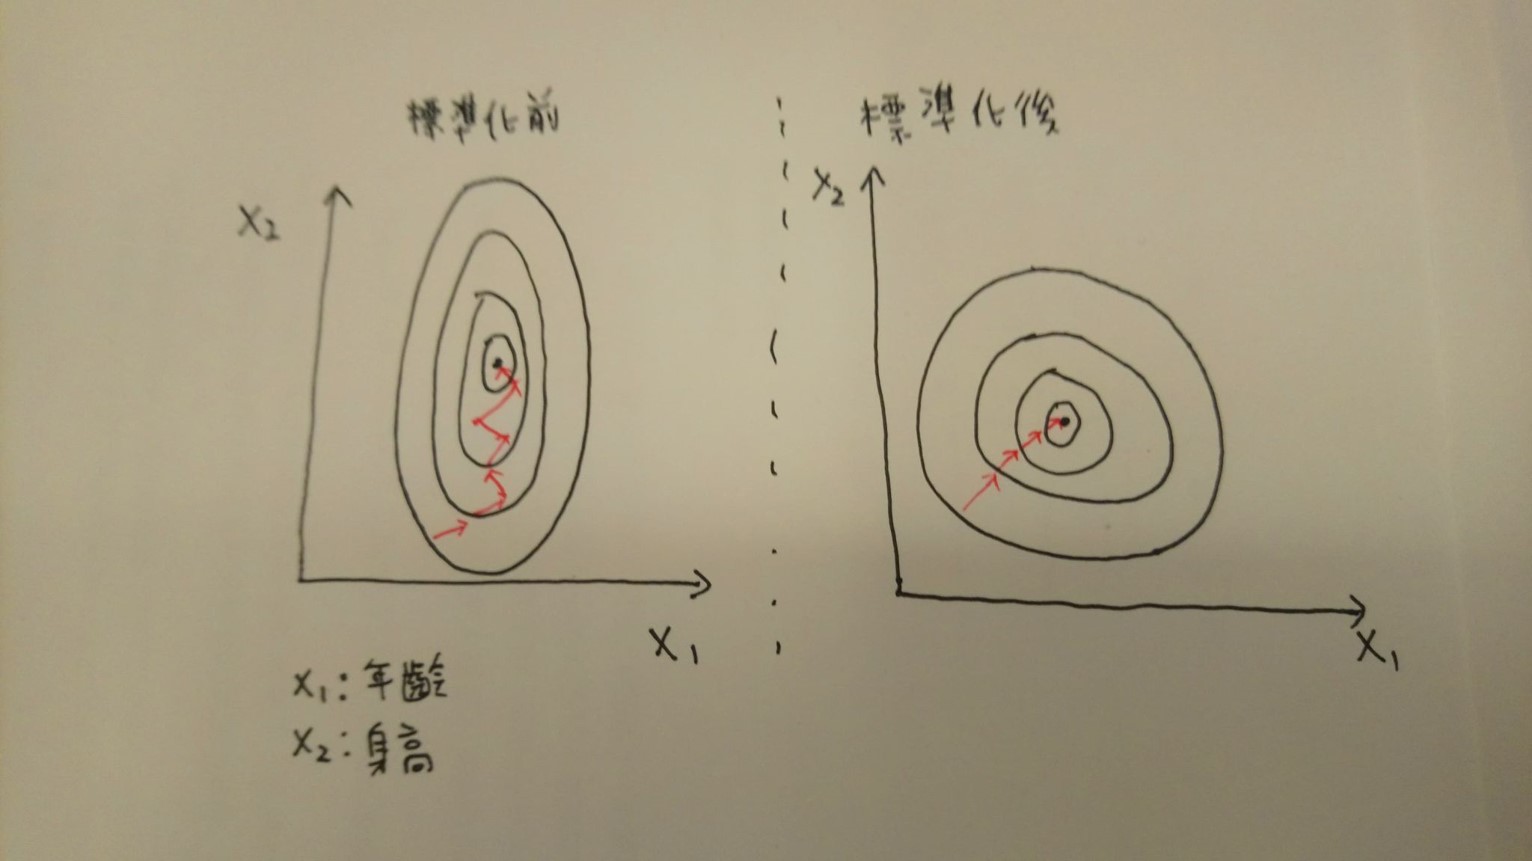 標準化前
X₂
X₁
X₁:年齡
X₂:身高
標準化後
X₂
X₁